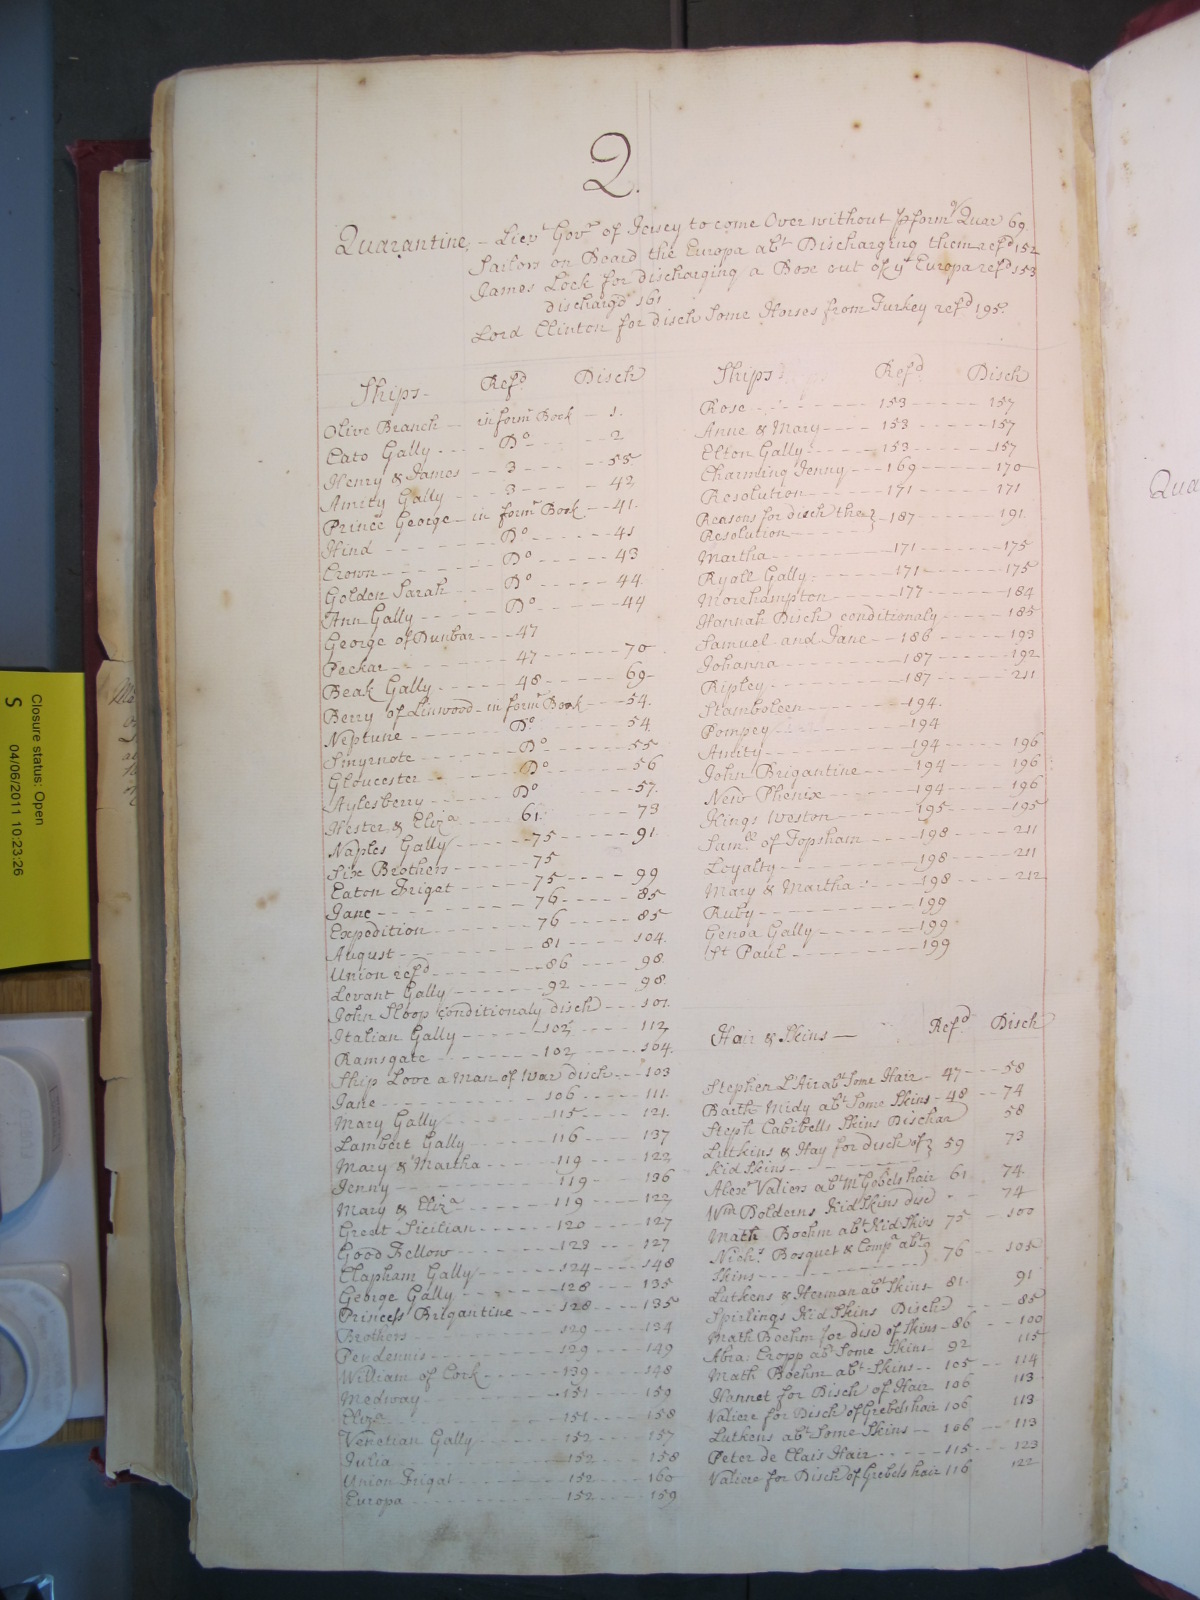 Q.
Quarantine. - Lieut Govr of Jersey to come Over without pform Quar 69
Sailors on Board the Europa abt Discharging them refd 152
James Lock for discharging a Boxe out of yt Europa refd 153
dischargd 161
Lord Clinton for disch Some Horses from Turkey refd 195.
Ships - Refd Disch
Olive Branch in formr Book 1.
Cato Gally Do 2
Henry & James 3 55
Amity Gally 3 42
Prince George in formr Book 41.
Hind Do 41
Crown Do 43
Golden Sarah Do 44
Ann Gally Do 44
George of Dunbar 47
Peckar 47 70
Beak Gally 48 69
Berry of Linwood in formr Book 54.
Neptune Do 54
Smyrnote Do 55
Gloucester Do 56
Aylesberry Do 57.
Hester & Eliza 61 73
Naples Gally 75 91
Six Brothers 75
Eaton Friget 75 99
Jane 76 85
Expedition 76 85
August 81 104.
Union refd 86 98
Levant Gally 92 98
John Sloop conditionaly disch 101.
Italian Gally 102 112
Ramsgate 102 104.
Ship Love a Man of War disch 103
Jane 106 111.
Mary Gally 115 121.
Lambert Gally 116 137
Mary & Martha 119 122
Jenny 119 136
Mary & Eliza 119 122
Great Sicilian 120 127
Good Fellow 123 127
Clapham Gally 124 148
George Gally 128 135
Princess Brigantine 128 135
Brothers 129 134
Pendennis 129 149
William of Cork 139 148
Medway 151 159
Eliza 151 158
Venetian Gally 152 157
Julia 152 158
Union Frigat 152 160
Europa 152 159
Ships Refd Disch
Rose 153 157
Anne & Mary 153 157
Elton Gally 153 157
Charming Jenny 169 170
Resolution 171 171
Reasons for disch the } 187 191.
Resolution
Martha 171 175
Ryall Gally 171 175
Morehampton 177 184
Hannah Disch conditionaly 185
Samuel and Jane 186 193
Johanna 187 192
Ripley 187 211
Stamboleen 194.
Pompey 194
Amity 194 196
John Brigantine 194 196
New Phenix 194 196
Kings Weston 195 195
Samll of Topsham 198 211
Loyalty 198 211
Mary & Martha 198 212
Ruby 199
Genoa Gally 199
St Paul 199
Hair & Skins Refd Disch
Stephen L'Air abt Some Hair 47 58
Barth Midy abt Some Skins 48 74
Steph Cabibells Skins Dischar 58
Lutkins & Hay for disch of } 59 73
Kid Skins
Alexr Valiers abt Mr Gebels hair 61 74.
Wm Bolderns Kid Skins disc 74
Math Boehm abt Kid Skins 75 100
Nichs Bosquet & Compa abt } 76 105
Skins
Lutkens & Herman abt Skins 81 91
Spirlings Kid Skins Disch 85
Math Boehm for disc of Skins 86 100
Abra: Cropp abt Some Skins 92 115
Math Boehm abt Skins 105 114
Hannet for Disch of Hair 106 113
Valiere for Disch of Grebels hair 106 113
Lutkens abt Some Skins 106 113
Peter de Clais Hair 115 123
Valiere for Disch of Grebels hair 116 122
Closure status: Open
S 04/06/2011 10:23:26
Qua